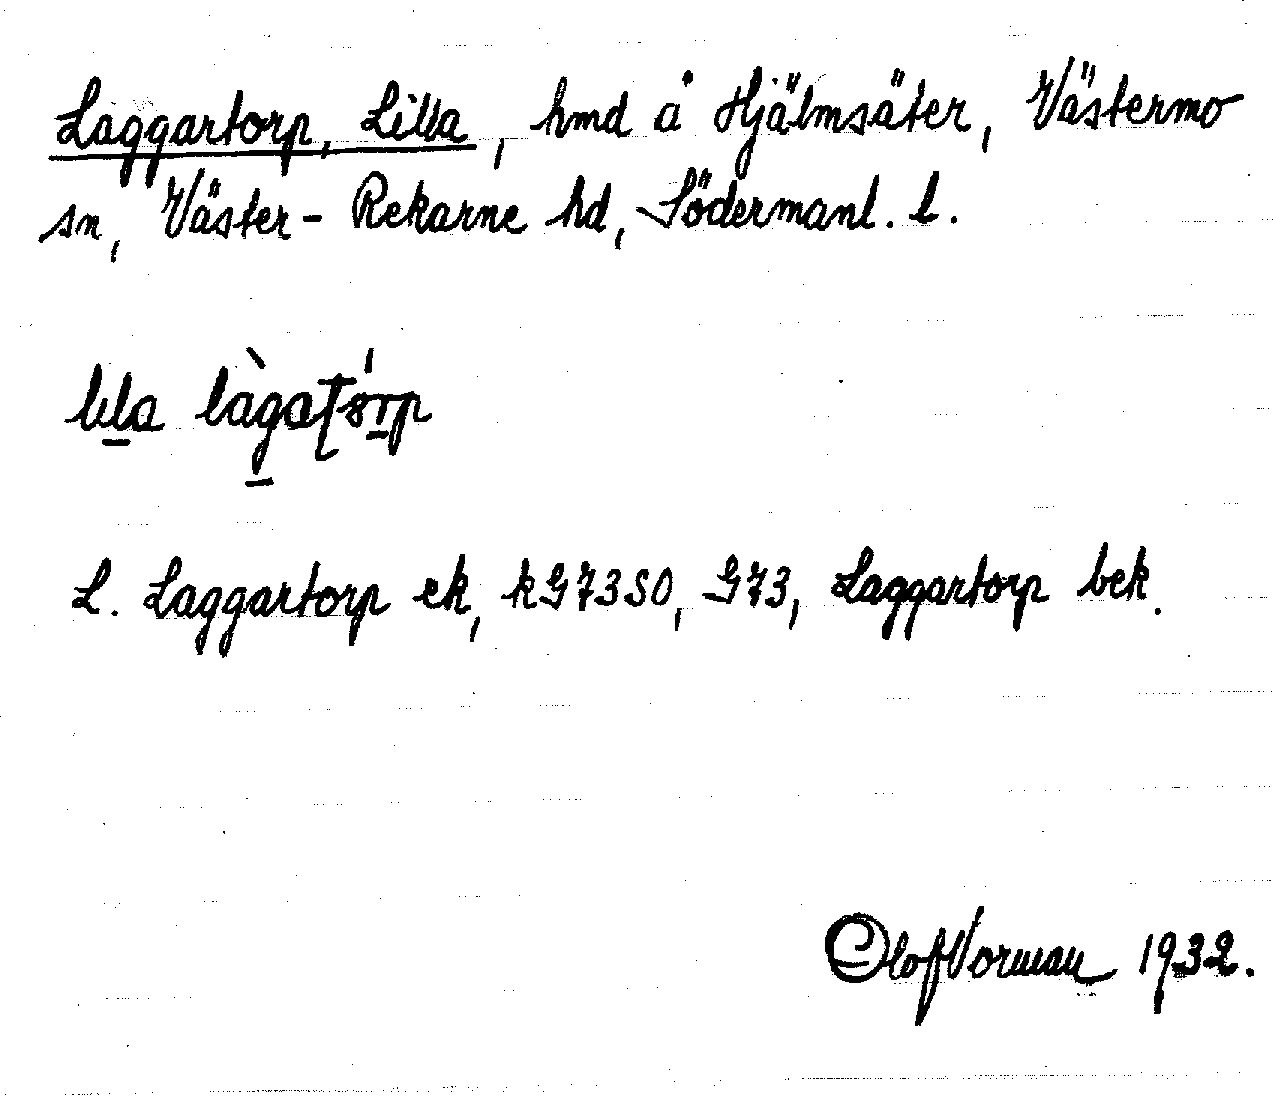 Laggartorp, Lilla, hmd å Hjälmsäter, Västermo
sn, Väster-Rekarne hd, Södermanl. l.
lila
L. Laggartorp ek, kG73SO, G73, Laggartorp bek.
Olof Vorman 1932.